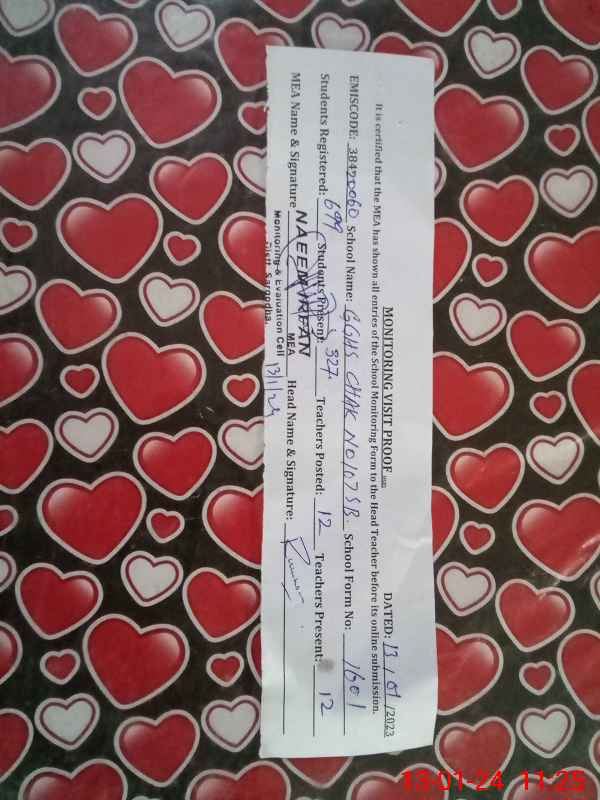 MONITORING VISIT PROOF DATED: 13/01/2023
It is certified that the MEA has shown all entries of the School Monitoring Form to the Head Teacher before its online submission.
EMISCODE: 38420060 School Name: GGHS CHAK NO 107 SB School Form No: 1601
Students Registered: 699 Students Present: 327 Teachers Posted: 12 Teachers Present: 12
MEA Name & Signature NAEEM IRFAN Head Name & Signature:
MEA
Monitoring & Evaluation Cell 13/1/24
Distt. Sargodha.
13-01-24 11:25